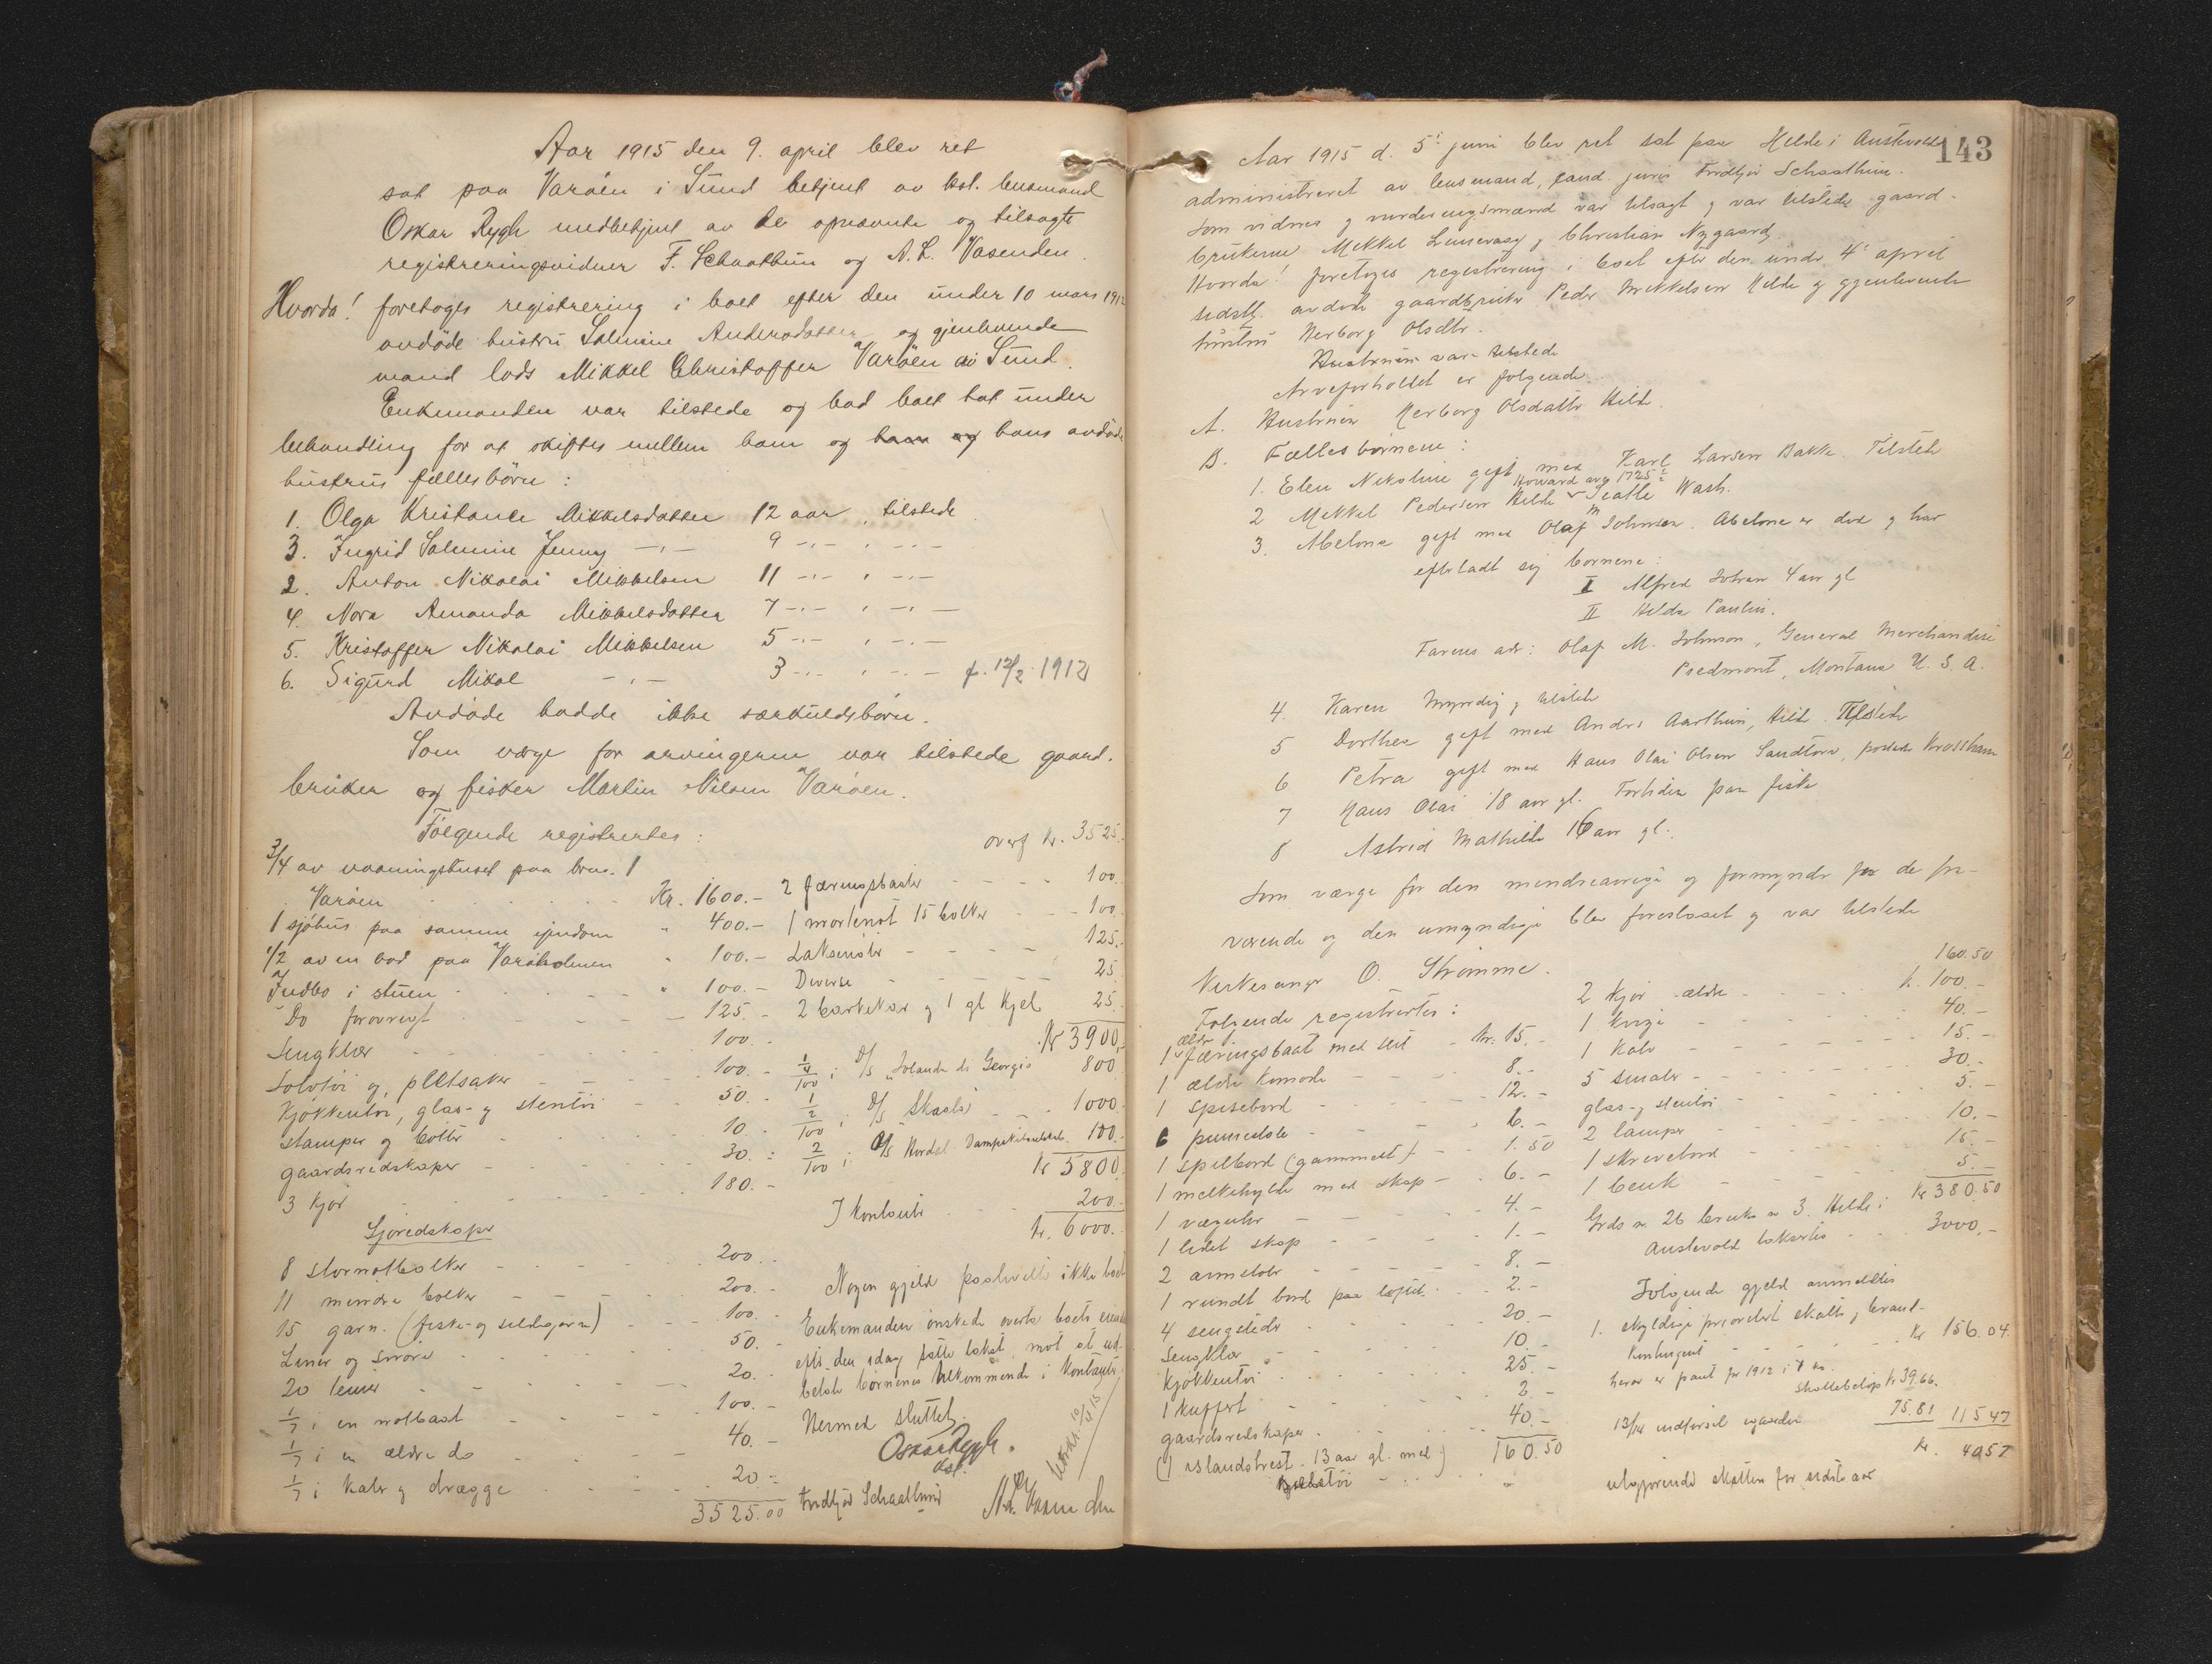 Aar 1915 den 9. april blev ret
sat paa Varøen i Sund betjent av kst. lensmand
Oskar Rygh medbetjent av de opnævnte og tilsagte
registreringsvidner F. Schaathun og A. L. Vasenden.
Hvorda! foretoges registrering i boet efter den under 10 mars 1912
avdøde hustru Salmine Andersdatter og gjenlevende
mand lods Mikkel Christoffer Varøen i Sund.
Enkemanden var tilstede og bad boet tat under
behandling for at skiftes mellem ham og ham og hans avdøde
hustrus fællesbørn:
1. Olga Kristance Mikkelsdatter 12 aar, tilstede
3. Ingrid Salmine Jenny -"- 9 -"- , -"-
2. Anton Nikolai Mikkelsen 11 -"- , -"-
4. Nora Amanda Mikkelsdatter 7 -"- , -"-
5. Kristoffer Nikolai Mikkelsen 5 -"- , -"-
6. Sigurd Mikal -"- 3 -"- , -"- f. 12/2 1912
Avdøde hadde ikke særkuldsbørn.
Som værge for arvingerne var tilstede gaard-
bruker og fisker Martin Nilsen Varøen.
Følgende registrertes:
3/4 av vaaningshuset paa brus. 1
Varøen Kr. 1600.-
1 sjøhus paa samme eiendom " 400.-
1/2 av en bod paa Varøholmen " 100.-
Indbo i stuen " 100.-
Do forøvrigt 125.-
Sengklær 100.-
Solvtøi og pletsaker 100.-
Kjøkkentøi, glas- og stentøi 50.-
Stamper og bøtter 10.-
Gaardsredskaper 30.-
3 kjør 180.-
Sjøredskaper
8 stornotbolker 200.-
11 mindre bolker 200.-
15 garn (fiske- og sildegarn) 100.-
Liner og snører 50.-
20 teiner 20.-
1/7 i en notbaat 100.-
1/7 i en ældre do 40.-
1/7 i kabr og drægge 20.-
3525.00
overf kr. 3525.-
2 færingsbaater 100.-
1 mortenot 15 bolker 100.-
Laksenøter 125.-
Diverse 25.-
2 barkekar og 1 gl kjel 25.-
Kr 3900.-
1/4/100 i D/S "Iolanda di Georgio" 800.-
1/2/100 i D/S Skaala 1000.-
2/100 i A/S Nordal. Dampskibsselskab 100.-
Kr 5800.-
I kontanter 200.-
Kr. 6000.-
Nogen gjeld paahvilte ikke boet
Enkemanden ønskede overta boets eiendele
efter den idag satte takst, mot at ud-
betale børnenes tilkommende i kontanter.
Hermed sluttet.
Oskar Rygh.
kst.
Utskr. 10/4 15
Fridtjov Schaathun A. L. Vasenden
143
Aar 1915 d. 5' juni blev ret sat paa Hilde i Austevold
administreret av lensmand, cand. juris Fridtjov Schaathun.
Som vidner og vurderingsmænd var tilsagt og var tilstede gaard-
brukerne Mikkel og Christian Nygaard.
Hvorda! foretoges registrering i boet efter den under 4' april
sidstl. avdøde gaardbruker Peder Mikkelsen Hilde og gjenlevende
hustru Herborg Olsdtr.
Hustruen var tilstede
Arveforholdet er følgende:
A. Hustruen Herborg Olsdatter Hilde.
B. Fællesbørnene:
1. Elen Nikoline gift med Karl Larsen Bakke. Tilstede
2 Mikkel Pedersen Hilde Howard ave 1725 Seatle Wash.
3. Abelone gift med Olaf M Johnsen. Abelone er død og har
efterladt sig børnene:
I Alfred Johan 4 aar gl
II Hilda Pauline.
Farens adr: Olaf M. Johnson, General Merchandise
Piedmont, Montana U. S. A.
4. Karen myndig og tilstede
5 Dorthea gift med Anders Aarthun, Hilde. Tilstede
6 Petra gift med Hans Olai Olsen Sandtorv, poststed Krosshavn
7 Hans Olai 18 aar gl. Fortiden paa fiske
8 Astrid Mathilde 16 aar gl.
Som værge for den mindreaarige og formynder for de fra-
værende og den umyndige blev foreslaaet og var tilstede
Kirkesanger O. Strømme.
Følgende registrertes:
1 ældre færingsbaat med seil kr. 15.-
1 ældre komode 8.-
1 spisebord 12.-
6 pinnestole 6.-
1 spilbord (gammelt) 1.50
1 melkehylde med skap 6.-
1 vægur 4.-
1 lidet skap 1.-
2 armstoler 8.-
1 rundt bord paa loftet 2.-
4 sengsteder 20.-
Sengklær 10.-
Kjøkkentøi 25.-
1 kuffert 2.-
gaardsredskaper 40.-
(1 islandshest 13 aar gl. med) 160.50
160.50
2 kjør ældre kr. 100.-
1 kvige 40.-
1 kalv 15.-
5 smaler 30.-
glas- og stentøi 5.-
2 lamper 10.-
1 skrivebord 15.-
1 benk 5.-
Kr 380.50
Grds n. 26 bruks n 3. Hilde i
Austevold takertes 3000.-
Følgende gjeld anmeldtes
1. skyldige prioritert skatter og brand-
kontingent Kr 156.04
herav er pant for 1912 i
skattebeløp kr 39.66.
13/14 75.81 115.47
Kr. 40.57
utgjørende skatten for sidste aar